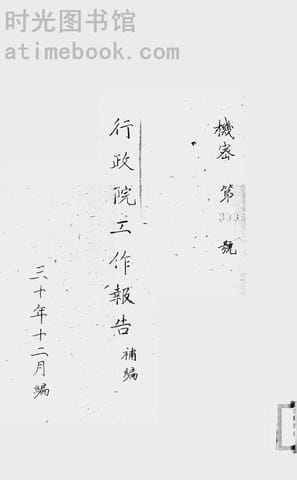 时光图书馆
atimebook.com
機密第333號
行政院工作報告補編
三十年十二月編